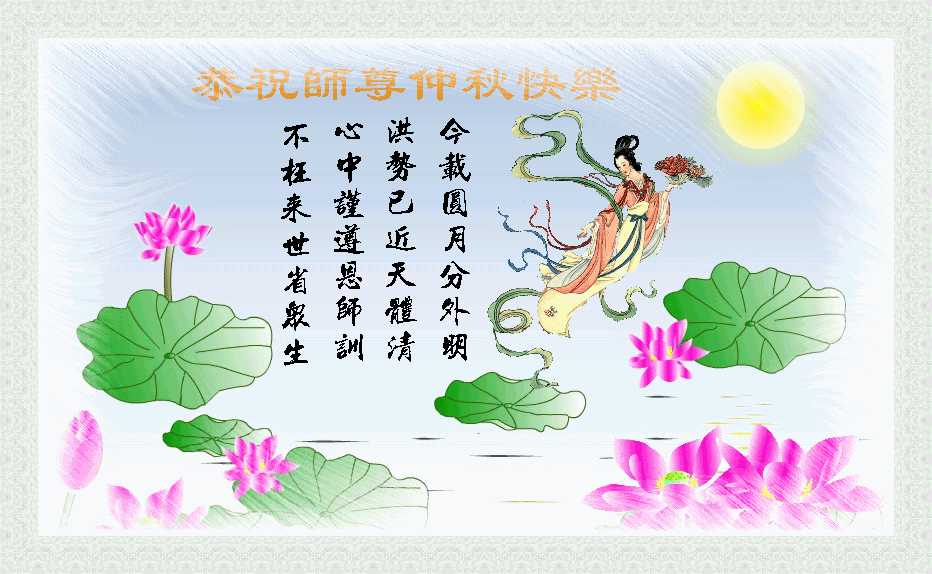 恭祝師尊仲秋快樂
今載圓月分外明
洪勢已近天體清
心中謹遵恩師訓
不枉来世省眾生